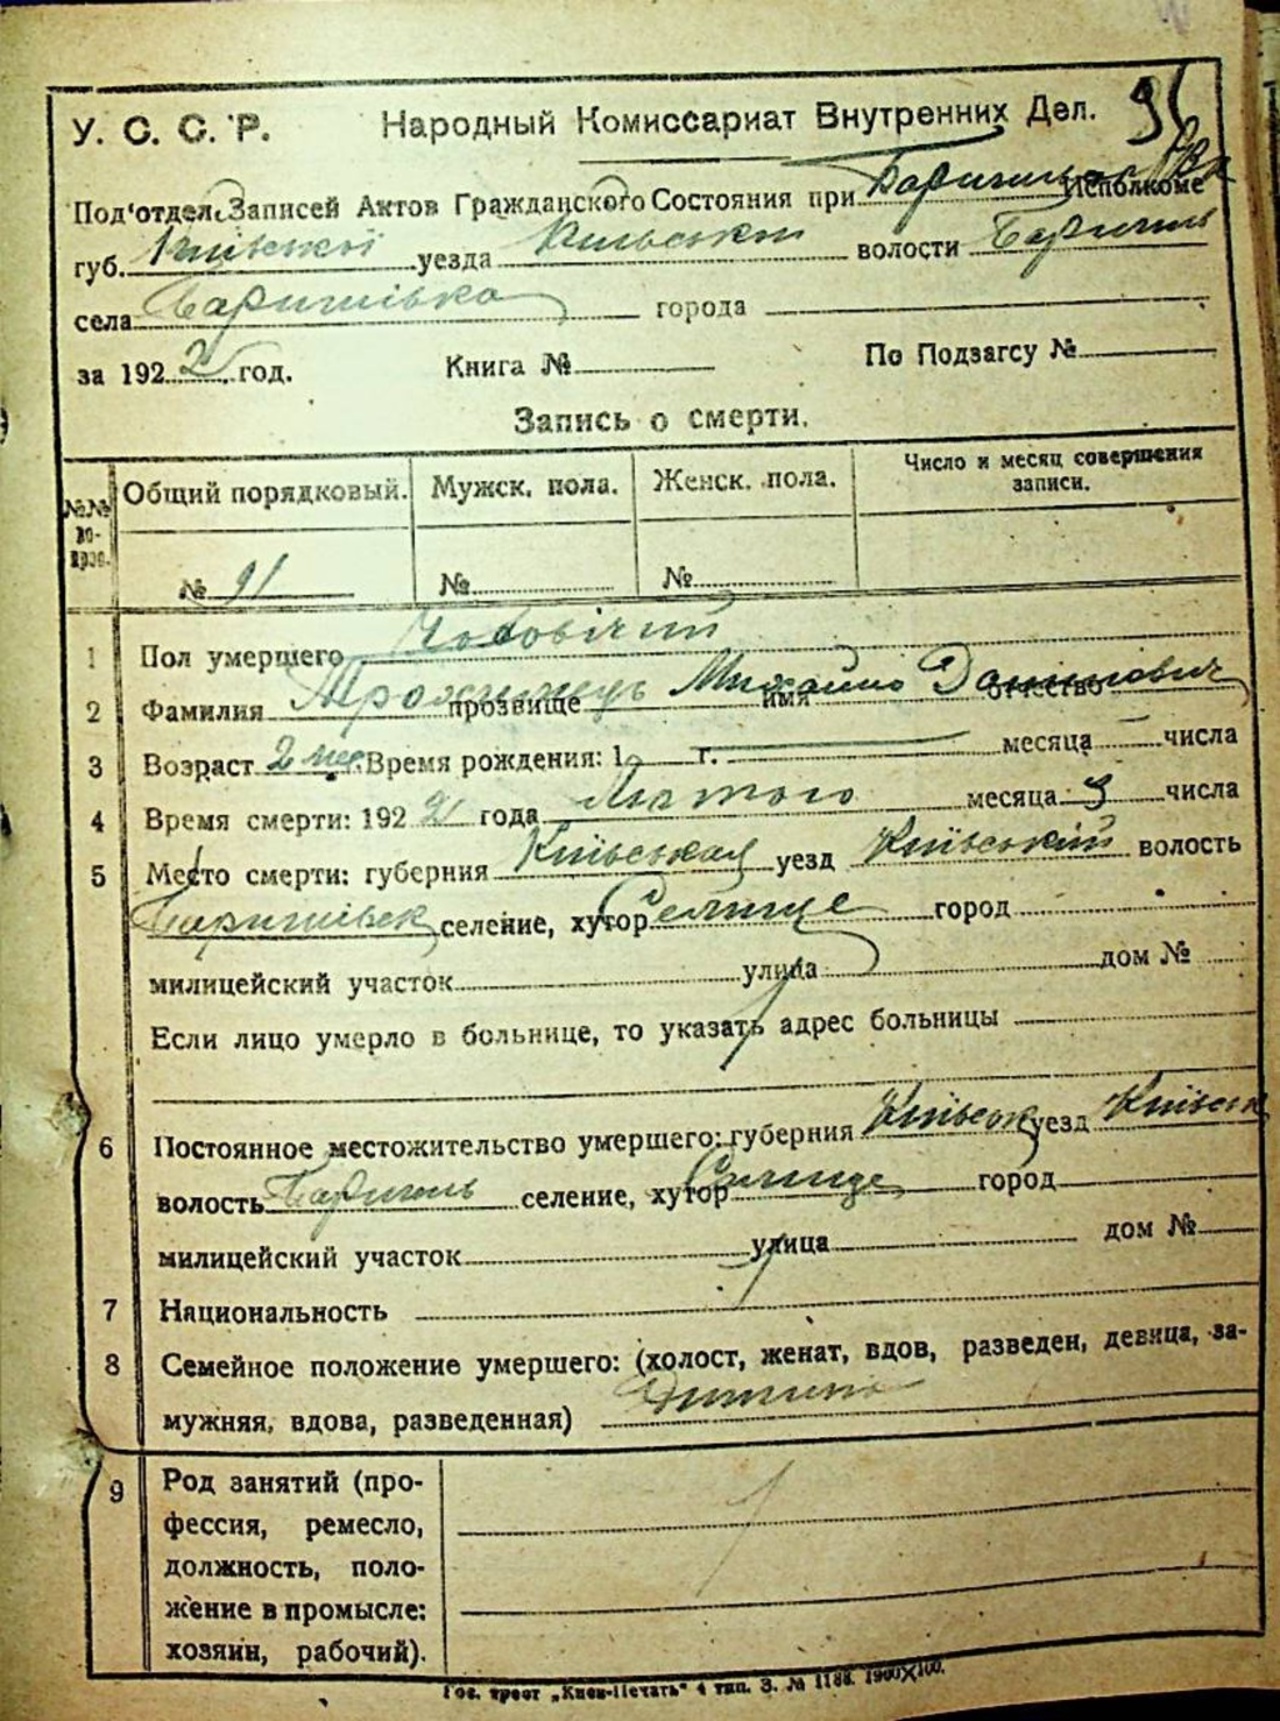 95
У. С. С. Р. Народный Комиссариат Внутренних Дел.
Под'отдел Записей Актов Гражданского Состояния при Исполкоме
губ. Київської уезда Київськ волости Баришль
села Баришівка города
за 1922 год. Книга № По Подзагсу №
Запись о смерти.
№№ вопрос. Общий порядковый. Мужск. пола. Женск. пола. Число и месяц совершения записи.
№ 91 № №
1 Пол умершего Чоловічий
2 Фамилия прозвище Михайло имя Данилович отчество
3 Возраст 2 мес. Время рождения: 1 г. месяца числа
4 Время смерти: 1922 года Лютого месяца 3 числа
5 Место смерти: губерния Київська уезд Київський волость
Баришівськ селение, хутор Селище город
милицейский участок улица дом №
Если лицо умерло в больнице, то указать адрес больницы
6 Постоянное местожительство умершего: губерния Київськ уезд Київськ
волость Баришль селение, хутор Селище город
милицейский участок улица дом №
7 Национальность
8 Семейное положение умершего: (холост, женат, вдов, разведен, девица, за-
мужняя, вдова, разведенная) Дитина
9 Род занятий (про-
фессия, ремесло,
должность, поло-
жение в промысле:
хозяин, рабочий).
Гос. трест „Киев-Печать" 4 тип. З. № 1188. 1900Х100.